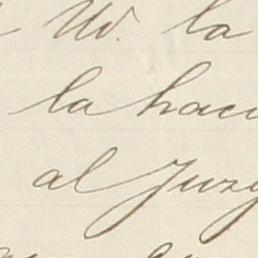 Ud. la
la haci
al Juzg